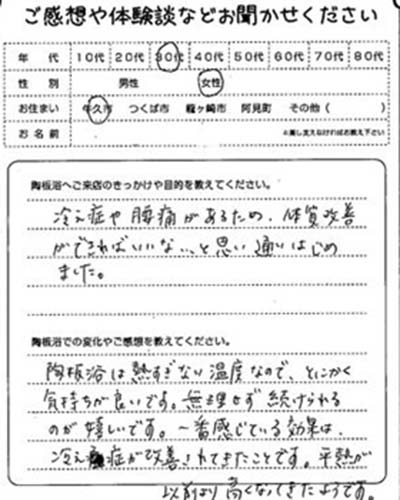 ご感想や体験談などお聞かせください
年 代 10代 20代 30代 40代 50代 60代 70代 80代
性 別 男性 女性
お住まい 牛久市 つくば市 龍ヶ崎市 阿見町 その他( )
お名前 ※差し支えなければお教え下さい
陶板浴へご来店のきっかけや目的を教えてください。
冷え症や腰痛があるため、体質改善
ができればいいな、、と思い通いはじめ
ました。
陶板浴での変化やご感想を教えてください。
陶板浴は熱すぎない温度なので、とにかく
気持ちが良いです。無理せず続けられる
のが嬉しいです。一番感じている効果は、
冷え症が改善されてきたことです。平熱が
以前より高くなってきたようです。